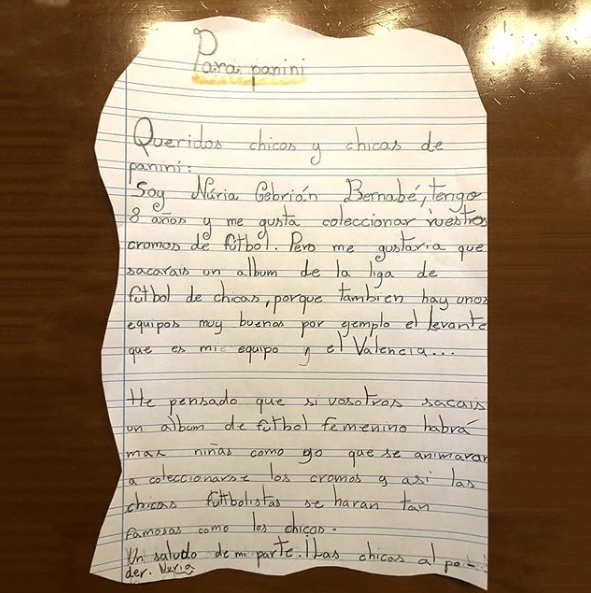 Para panini
Queridos chicos y chicas de
panini:
Soy Núria Cebrián Bernabé, tengo
8 años y me gusta coleccionar vuestros
cromos de fútbol. Pero me gustaria que
sacarais un album de la liga de
fútbol de chicas, porque tambien hay unos
equipos muy buenos por ejemplo el levante
que es mi equipo y el Valencia...
He pensado que si vosotros sacais
un album de fútbol femenino habrá
mas niñas como yo que se animaran
a coleccionarse los cromos y asi las
chicas futbolistas se haran tan
famosas como los chicos.
Un saludo de mi parte. ¡Las chicas al po-
der. Nuria